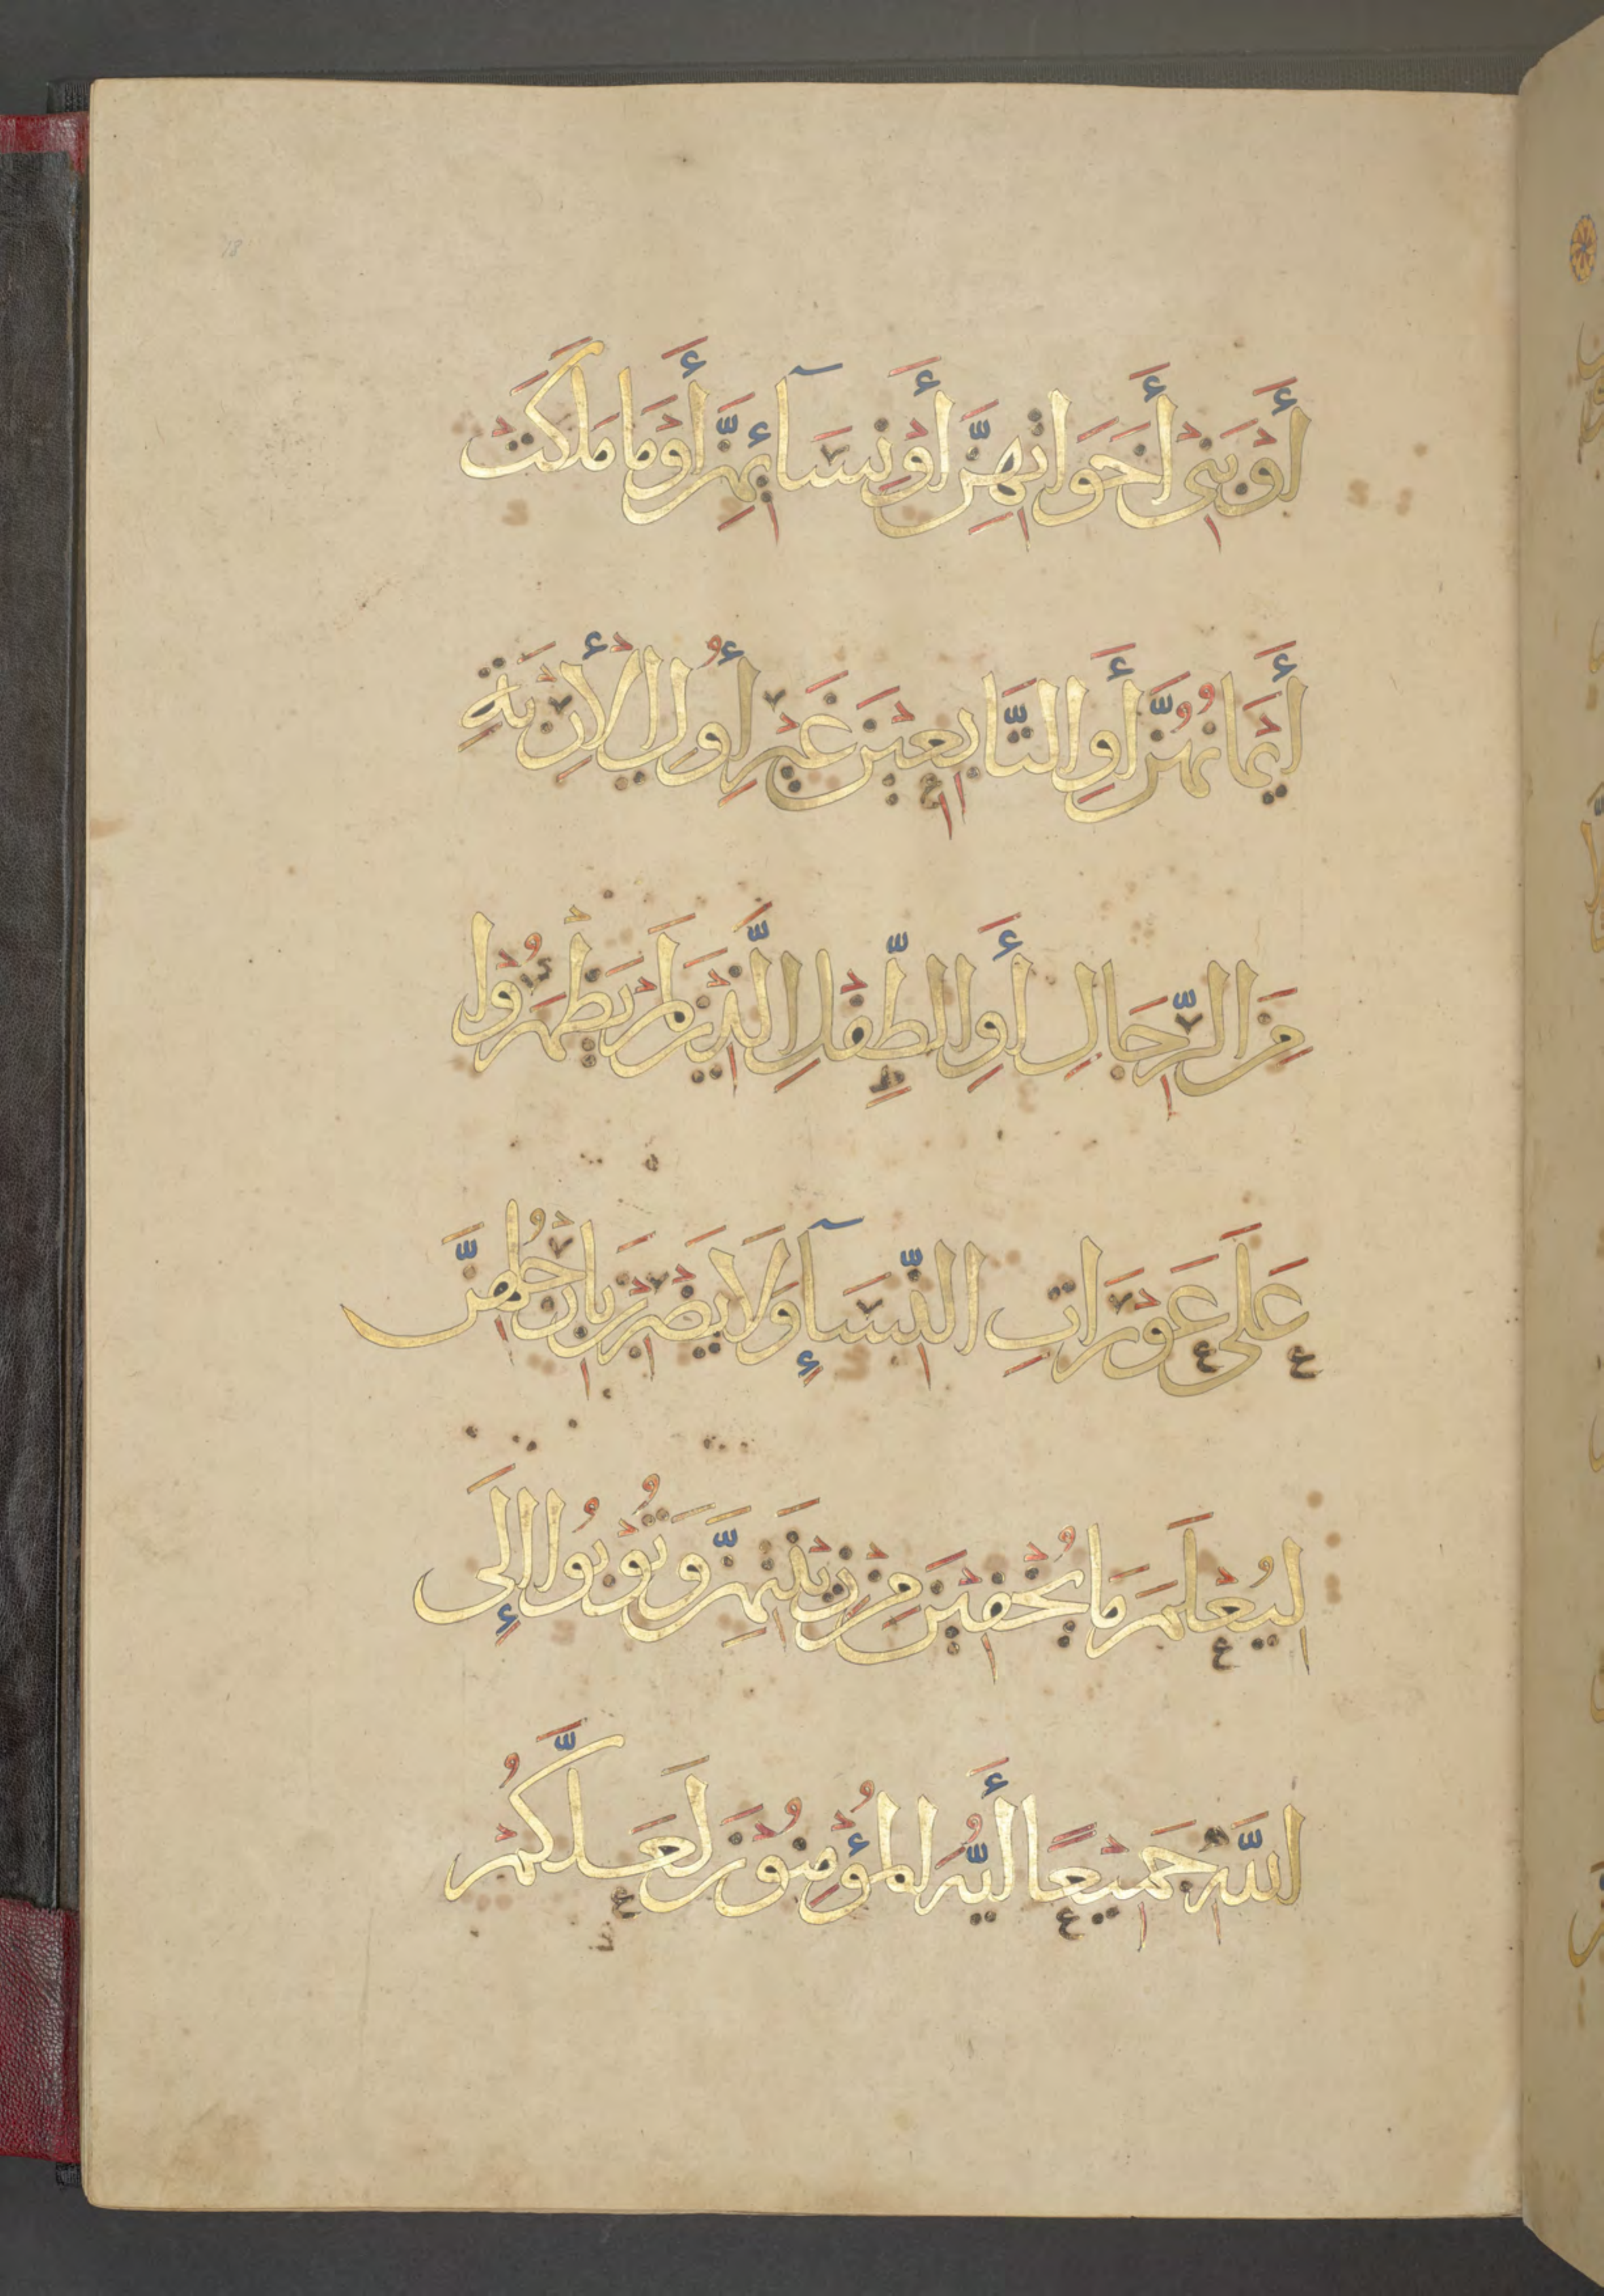 أَوْ بَنِىْ أَخَوَاتِهِنَّ أَوْ نِسَآئِهِنَّ أَوْ مَا مَلَكَتْ
أَيْمَانُهُنَّ أَوِ التَّابِعِيْنَ غَيْرِ أُولِى الْأِرْبَةِ
مِنَ الرِّجَالِ أَوِ الطِّفْلِ الَّذِيْنَ لَمْ يَظْهَرُوْا
عَلَى عَوْرَاتِ النِّسَآءِ وَلَا يَضْرِبْنَ بِأَرْجُلِهِنَّ
لِيُعْلَمَ مَا يُخْفِيْنَ مِنْ زِيْنَتِهِنَّ وَتُوْبُوا إِلَى
اللَّهِ جَمِيْعًا أَيُّهَ الْمُؤْمِنُوْنَ لَعَلَّكُمْ
18